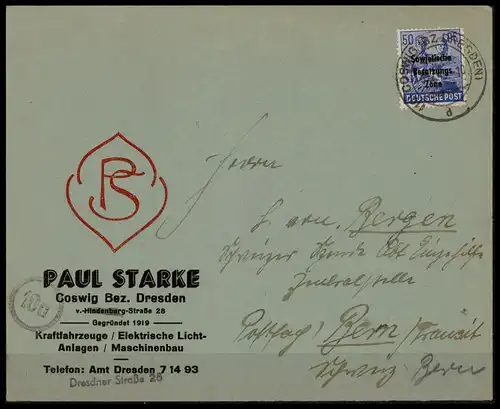 50
Sowjetische
Besatzungs
Zone
DEUTSCHE POST
COSWIG (BZ. DRESDEN)
PS
PAUL STARKE
Coswig Bez. Dresden
v.-Hindenburg-Straße 28
Gegründet 1919
Kraftfahrzeuge / Elektrische Licht-
Anlagen / Maschinenbau
Telefon: Amt Dresden 7 14 93
Dresdner Straße 26
Herrn
von Bergen
Zentralstelle
Postfach Bern / Transit
Schweiz Bern